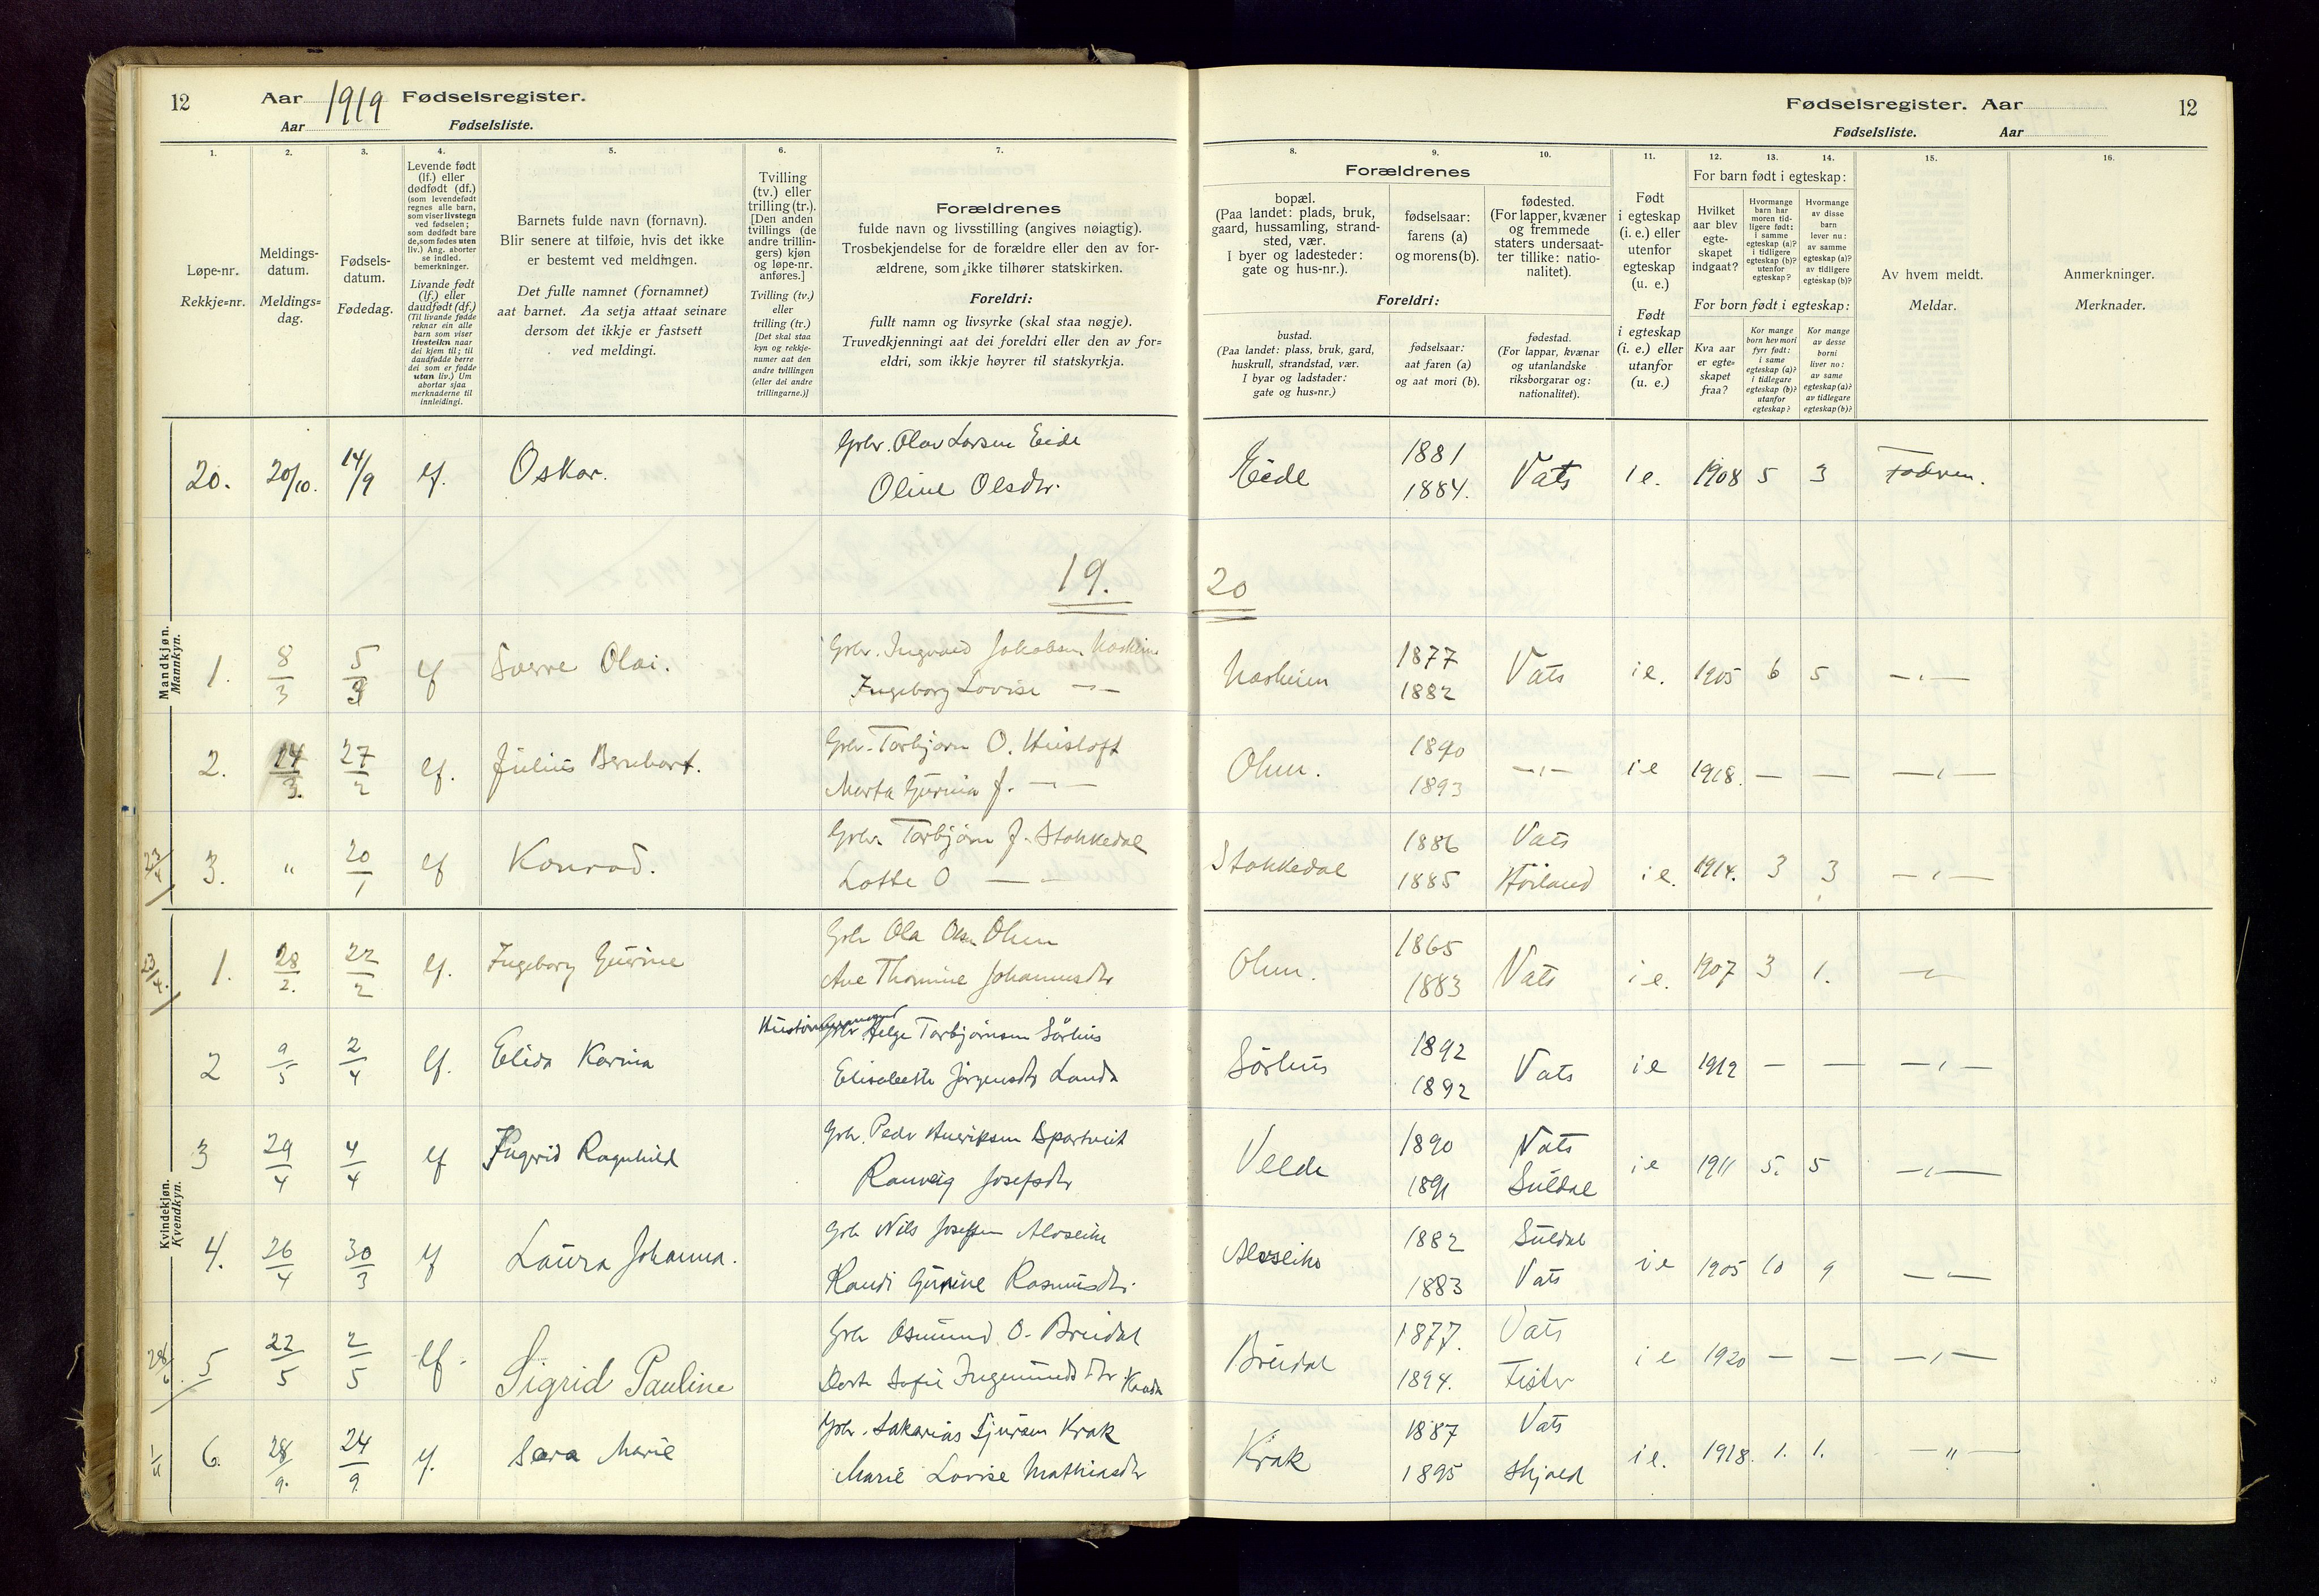 12
Aar 1919 Fødselsregister.
Aar Fødselsliste.
1.
2.
3.
4.
5.
6.
7.
Løpe-nr.
Rekkje=nr.
Meldings-
datum.
Meldings=
dag.
Fødsels-
datum.
Fødedag.
Levende født
(lf.) eller
dødfødt (df.)
(som levendefødt
regnes alle barn,
som viser livstegn
ved fødselen;
som dødfødt bare
de, som fødes uten
liv.) Ang. aborter
se indled.
bemerkninger.
Livande født
(lf.) eller
daudfødt (df.)
(Til livande fødde
reknar ein alle
barn som viser
livsteikn naar
dei kjem til; til
daudfødde berre
dei som er fødde
utan liv.) Um
abortar sjaa
merknaderne til
innleidingi.
Barnets fulde navn (fornavn).
Blir senere at tilføie, hvis det ikke
er bestemt ved meldingen.
Det fulle namnet (fornamnet)
aat barnet. Aa setja attaat seinare
dersom det ikkje er fastsett
ved meldingi.
Tvilling
(tv.) eller
trilling (tr.).
[Den anden
tvillings (de
andre trillin-
gers) kjøn
og løpe-nr.
anføres.]
Tvilling (tv.)
eller
trilling (tr.)
[Det skal staa
kyn og rekkje-
numer aat den
andre tvillingen
(eller dei andre
trillingarne.)]
Forældrenes
fulde navn og livsstilling (angives nøiagtig).
Trosbekjendelse for de forældre eller den av for-
ældrene, som ikke tilhører statskirken.
Foreldri:
fullt namn og livsyrke (skal staa nøgje).
Truvedkjenningi aat dei foreldri eller den av for=
eldri, som ikkje høyrer til statskyrkja.
Fødselsregister. Aar
12
Fødselsliste. Aar
8.
9.
10.
11.
12.
13.
14.
15.
16.
Forældrenes
bopæl.
(Paa landet: plads, bruk,
gaard, hussamling, strand-
sted, vær.
I byer og ladesteder:
gate og hus-nr.).
fødselsaar:
farens (a)
og morens (b).
fødested.
(For lapper, kvæner
og fremmede
staters undersaat-
ter tillike: natio-
nalitet).
Foreldri:
bustad.
(Paa landet: plass, bruk, gard,
huskrull, strandstad, vær.
I byar og ladstader:
gate og hus=nr.)
fødselsaar:
aat faren (a)
og aat mori (b).
fødestad.
(For lappar, kvænar
og utanlandske
riksborgarar og:
nationalitet).
Født
i egteskap
(i. e.) eller
utenfor
egteskap
(u. e.)
Født
i egteskap
(i. e.) eller
utanfor
egteskap
(u. e.)
For barn født i egteskap:
Hvilket
aar blev
egte-
skapet
indgaat?
Hvormange
barn har
moren tid-
ligere født:
i samme
egteskap (a)?
i tidligere
egteskap (b)?
utenfor
egteskap?
Hvormange
av disse
barn
lever nu:
av samme
egteskap (a)?
av tidligere
egteskap (b)?
For born født i egteskap:
Kva aar
er egte-
skapet
fraa?
Kor mange
born hev mori
fyrr født:
i same
egteskap (a)?
i tidlegare
egteskap (b)?
utanfor
egteskap?
Kor mange
av desse
borni
liver no:
av same
egteskap (a)?
av tidlegare
egteskap (b)?
Av hvem meldt.
Meldar.
Anmerkninger.
Merknader.
Mandkjøn.
Mannkyn.
20. 20/10. 14/9 lf. Oskar. Grbr. Olav Larsen Eide
Oline Olsdtr.
Eide 1881 1884. Vats i e. 1908 5 3 Faderen.
19. 20
1. 8/3 5/3 lf Sverre Olai. Grbr. Ingvald Jakobsen
Ingeborg Lovise —"—
1877 1882 Vats i e. 1905 6 5 —"—
2. 14/3. 27/2 lf. Julius Bernhart. Grbr. Torbjørn O. Husloft
Marta Gurina J. —"—
Ohm. 1890 1893 —"— i e 1918. — — —"—
23/4 3. " 20/1 lf Konrad. Grbr. Torbjørn J. Stokkedal
Lotte O —"—
Stokkedal 1886 1885 Vats i e. 1914. 3 3 —"—
Kvindekjøn.
Kvendkyn.
23/4. 1. 28/2. 22/2 lf. Ingeborg Gurine Grbr Ola Olsn Ohm
Ane Thomine Johannesdtr
Ohm. 1865 1883 Vats i e. 1907 3 1. —"—
2 9/5 2/4 lf. Elida Karina Grbr Helge Torbjørnsen Sørhus
Elisabeth Jørgensdtr Landa
Sørhus 1892 1892 Vats i e 1912 — — —"—
3 29/4 4/4 lf Ingrid Ragnhild Grbr. Peder Henriksen
Ranveig Josefsdtr
Velde 1890 1891 Vats Suldal i e 1911 5. 5 —"—
4. 26/4 30/3 lf Laura Johanna. Grbr Nils Josefsen Alvseike
Randi Gurine Rasmusdtr.
Alvseike 1882 1883 Suldal Vats i e 1905 10 9 —"—
28/6 5 22/5 2/5 lf. Sigrid Pauline Grbr Osmund O. Breidal
Sofie Ingemundsdtr
Breidal 1877. 1894. Vats Fister i e 1920 — — —"—
6. 28/9. 24/9. lf. Sara Marie Grbr. Sakarias Sjursen Krak
Marie Lovise Mathiasdtr
Krak 1887 1895 Vats Skjold i e. 1918. 1. 1. —"—